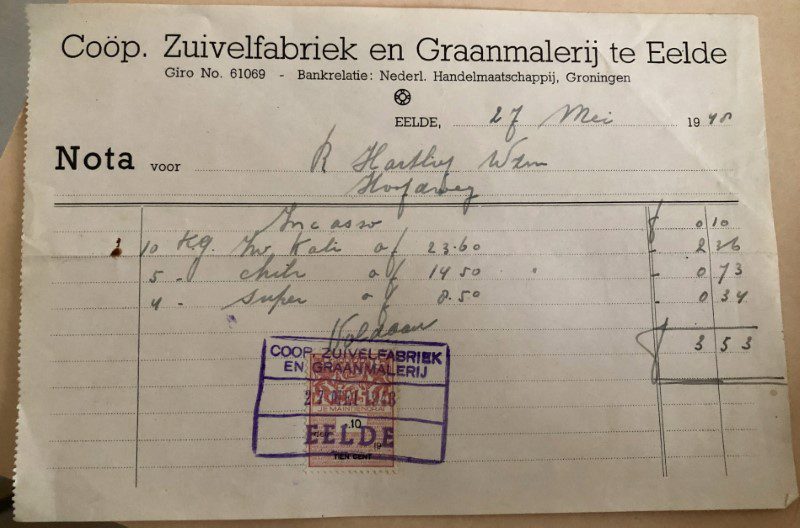 Coöp. Zuivelfabriek en Graanmalerij te Eelde
Giro No. 61069 - Bankrelatie: Nederl. Handelmaatschappij, Groningen
EELDE, 27 Mei 19 48
Nota voor R Hartlief Wzn
Hoofdweg
Incasso f 0 10
10 Kg. Zw Kali af 23.60 - 2 36
5 - chili af 14 50 - 0 73
4 - super af 8.50 - 0 34
Voldaan
f 3 53
COOP. ZUIVELFABRIEK
EN GRAANMALERIJ
27 MEI 1948
JE MAINTIENDRAI
.10
EELDE
TIEN CENT